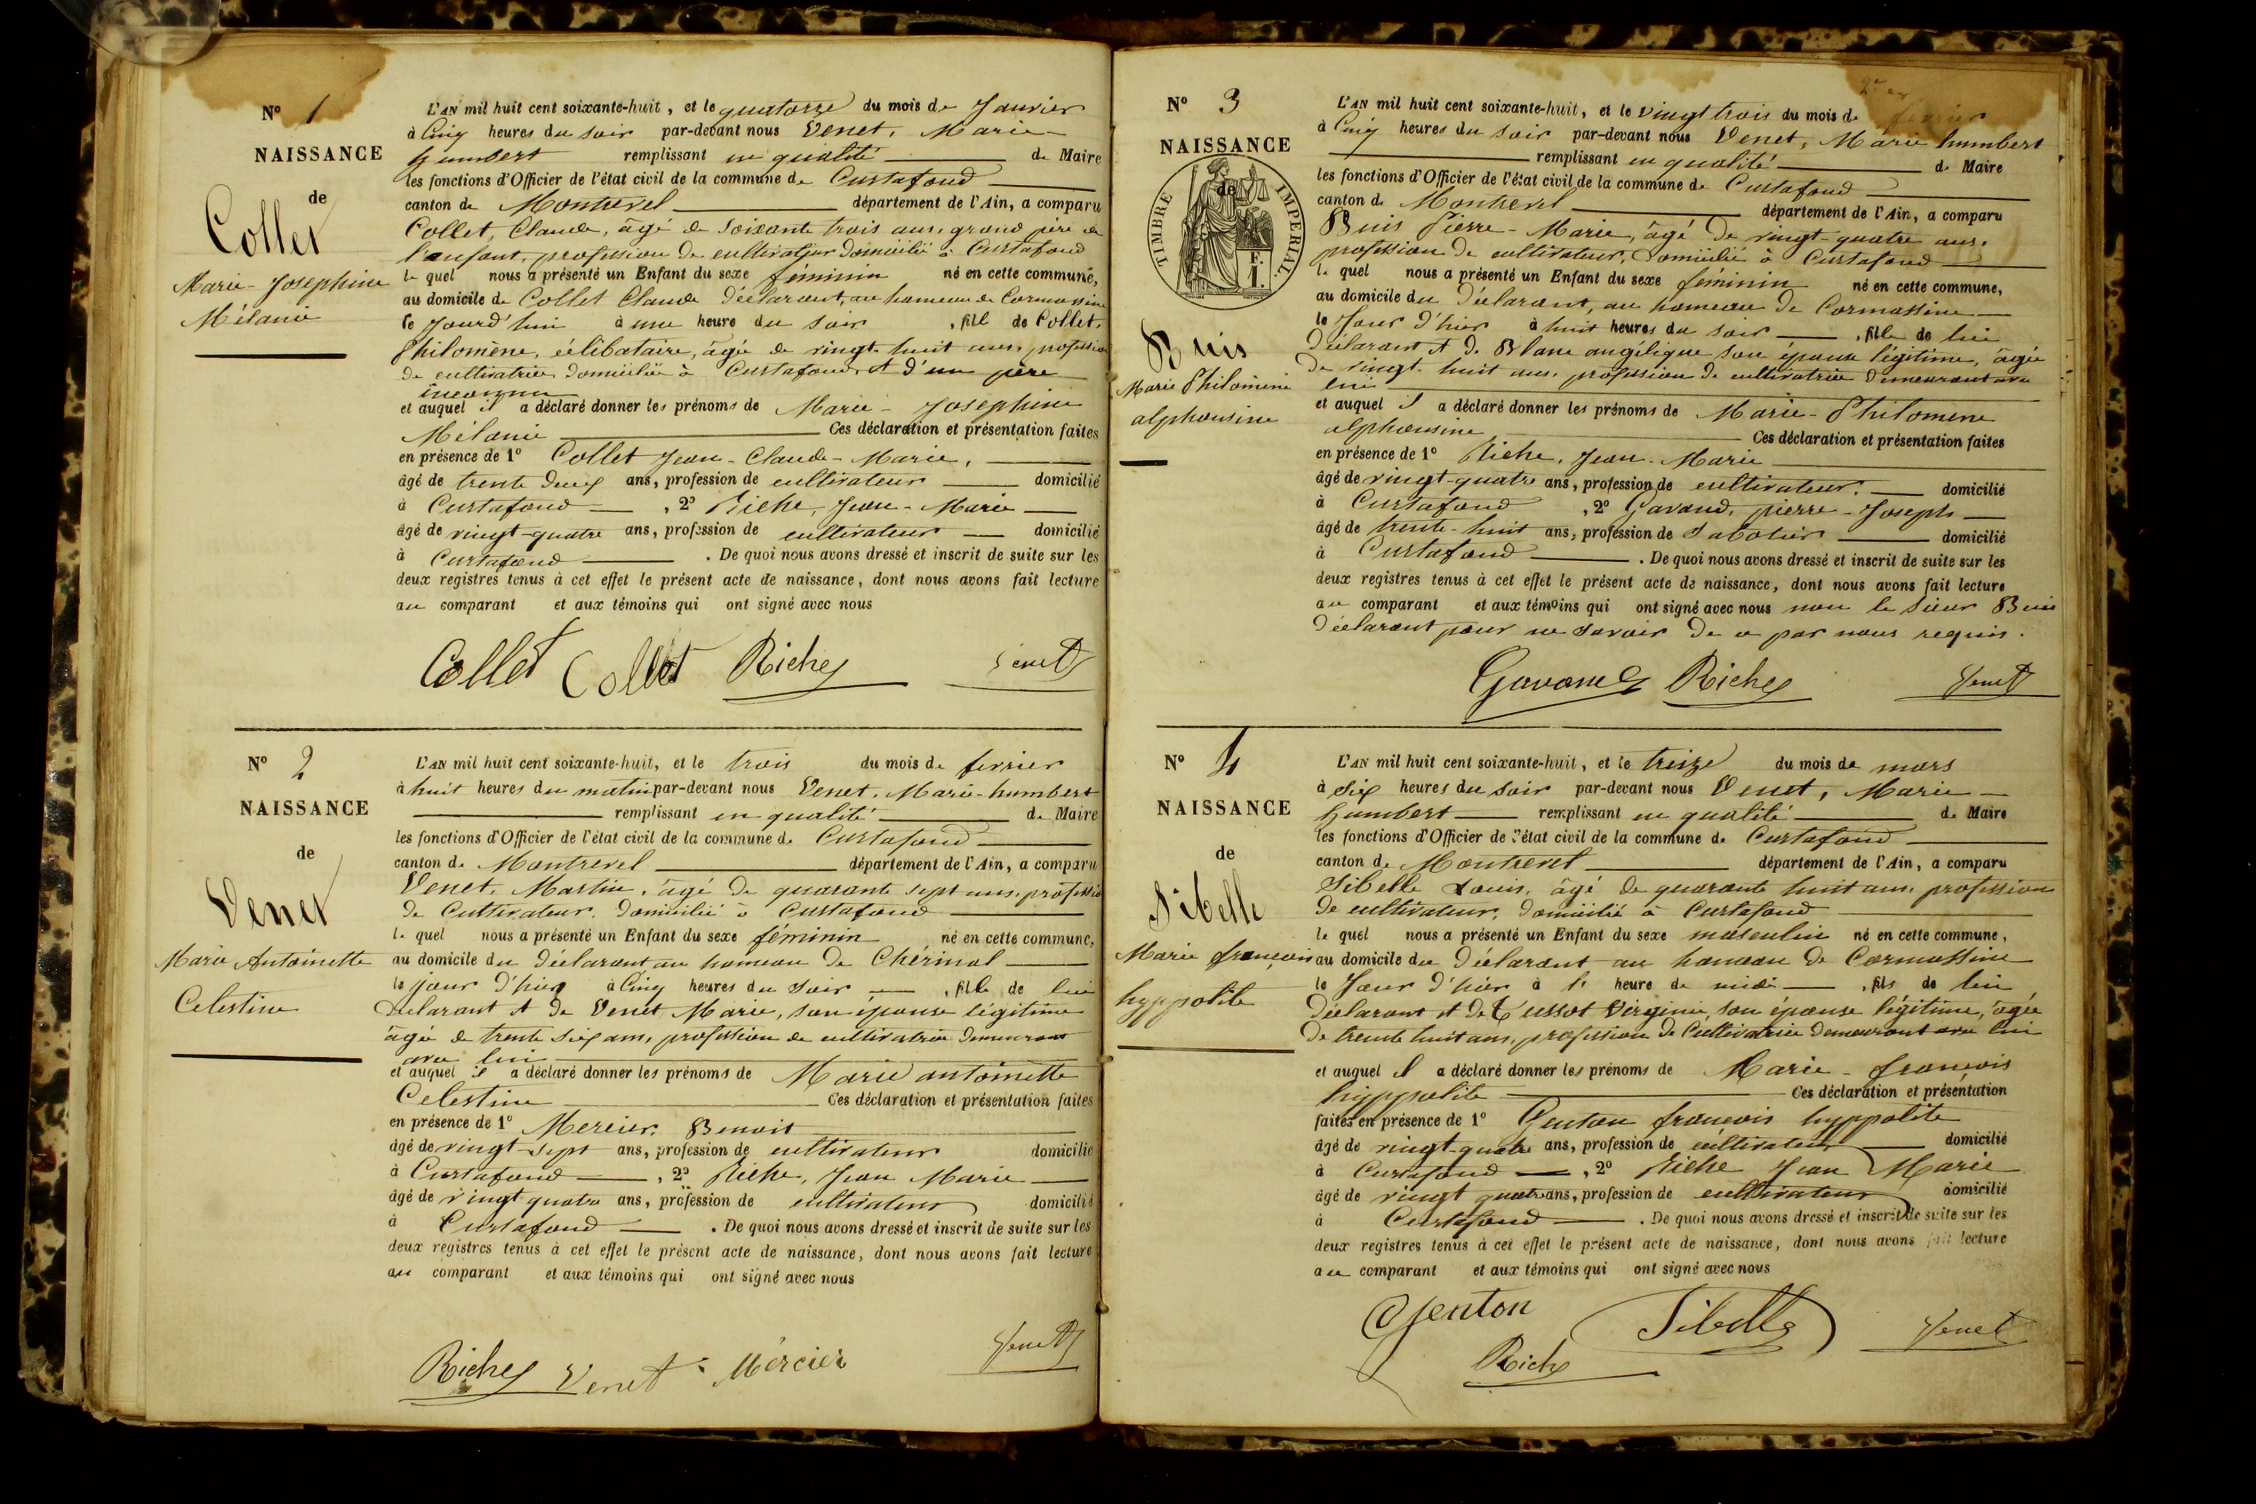 N° 1
NAISSANCE
de
Collet
Marie-Josephine
Mélanie
L'AN mil huit cent soixante-huit, et le quatorze du mois de Janvier
à Cinq heures du soir par-devant nous Venet, Marie-
humbert remplissant en qualité de Maire
les fonctions d'Officier de l'état civil de la commune de Curtafond
canton de Montrevel département de l'Ain, a comparu
Collet, Claude, âgé de soixante trois ans, grand père de
l'enfant, profession de cultivateur domicilié à Curtafond
le quel nous a présenté un Enfant du sexe féminin né en cette commune,
au domicile de Collet Claude déclarant, au hameau de Cormassine
le jourd'hui à une heure du soir, fille de Collet,
Philomène, célibataire, âgée de vingt-huit ans, profession
de cultivatrice domiciliée à Curtafond et d'un père
inconnu
et auquel il a déclaré donner les prénoms de Marie-Josephine
Mélanie Ces déclaration et présentation faites
en présence de 1° Collet Jean-Claude-Marie,
âgé de trente deux ans, profession de cultivateur domicilié
à Curtafond, 2° Riche, Jean-Marie
âgé de vingt-quatre ans, profession de cultivateur domicilié
à Curtafond. De quoi nous avons dressé et inscrit de suite sur les
deux registres tenus à cet effet le présent acte de naissance, dont nous avons fait lecture
au comparant et aux témoins qui ont signé avec nous
Collet Collet Riche Venet
N° 2
NAISSANCE
de
Venet
Marie Antoinette
Celestine
L'AN mil huit cent soixante-huit, et le trois du mois de fevrier
à huit heures du matin par-devant nous Venet, Marie-humbert
remplissant en qualité de Maire
les fonctions d'Officier de l'état civil de la commune de Curtafond
canton de Montrevel département de l'Ain, a comparu
Venet, Martin, âgé de quarante sept ans, profession
de Cultivateur, domicilié à Curtafond
le quel nous a présenté un Enfant du sexe féminin né en cette commune,
au domicile du déclarant au hameau de Chérinal
le jour d'hier à Cinq heures du soir, fille de lui
déclarant et de Venet Marie, son épouse légitime
âgée de trente six ans, profession de cultivatrice demeurant
avec lui
et auquel il a déclaré donner les prénoms de Marie antoinette
Celestine Ces déclaration et présentation faites
en présence de 1° Mercier, Benoit
âgé de vingt-sept ans, profession de cultivateur domicilié
à Curtafond, 2° Riche, Jean Marie
âgé de vingt quatre ans, profession de cultivateur domicilié
à Curtafond. De quoi nous avons dressé et inscrit de suite sur les
deux registres tenus à cet effet le présent acte de naissance, dont nous avons fait lecture
au comparant et aux témoins qui ont signé avec nous
Riche Venet Mercier Venet
N° 3
NAISSANCE
de
TIMBRE IMPERIAL
F.
1.
Buis
Marie Philomène
alphonsine
L'AN mil huit cent soixante-huit, et le vingt trois du mois de fevrier
à Cinq heures du soir par-devant nous Venet, Marie humbert
remplissant en qualité de Maire
les fonctions d'Officier de l'état civil de la commune de Curtafond
canton de Montrevel département de l'Ain, a comparu
Buis Pierre-Marie, âgé de vingt-quatre ans,
profession de cultivateur, domicilié à Curtafond
le quel nous a présenté un Enfant du sexe féminin né en cette commune,
au domicile du déclarant, au hameau de Cormassine
le Jour d'hier à huit heures du soir, fille de lui
déclarant et de Blanc angélique son épouse légitime, âgée
de vingt-huit ans, profession de cultivatrice demeurant avec
lui
et auquel il a déclaré donner les prénoms de Marie-Philomène
alphonsine Ces déclaration et présentation faites
en présence de 1° Riche, Jean-Marie
âgé de vingt-quatre ans, profession de cultivateur. domicilié
à Curtafond, 2° Gavand, pierre-Joseph
âgé de trente-huit ans, profession de Sabotier domicilié
à Curtafond. De quoi nous avons dressé et inscrit de suite sur les
deux registres tenus à cet effet le présent acte de naissance, dont nous avons fait lecture
au comparant et aux témoins qui ont signé avec nous non le sieur Buis
déclarant pour ne savoir de ce par nous requis.
Gavand Riche Venet
N° 4
NAISSANCE
de
Sibelle
Marie françois
hyppolite
L'AN mil huit cent soixante-huit, et le treize du mois de mars
à Six heures du soir par-devant nous Venet, Marie-
humbert remplissant en qualité de Maire
les fonctions d'Officier de l'état civil de la commune de Curtafond
canton de Montrevel département de l'Ain, a comparu
Sibelle Louis, âgé de quarante huit ans, profession
de cultivateur, domicilié à Curtafond
le quel nous a présenté un Enfant du sexe masculin né en cette commune,
au domicile du déclarant au hameau de Cormassine
le Jour d'hier à l' heure de midi, fils de lui
déclarant et de Cussot Virginie, son épouse légitime, âgée
de trente huit ans, profession de Cultivatrice demeurant avec lui
et auquel il a déclaré donner les prénoms de Marie-francois
hyppolite Ces déclaration et présentation
faites en présence de 1° Genton francois hyppolite
âgé de vingt-quatre ans, profession de cultivateur domicilié
à Curtafond, 2° Riche Jean Marie
âgé de vingt quatre ans, profession de cultivateur domicilié
à Curtafond. De quoi nous avons dressé et inscrit de suite sur les
deux registres tenus à cet effet le présent acte de naissance, dont nous avons fait lecture
au comparant et aux témoins qui ont signé avec nous
Genton Sibelle Venet
Riche